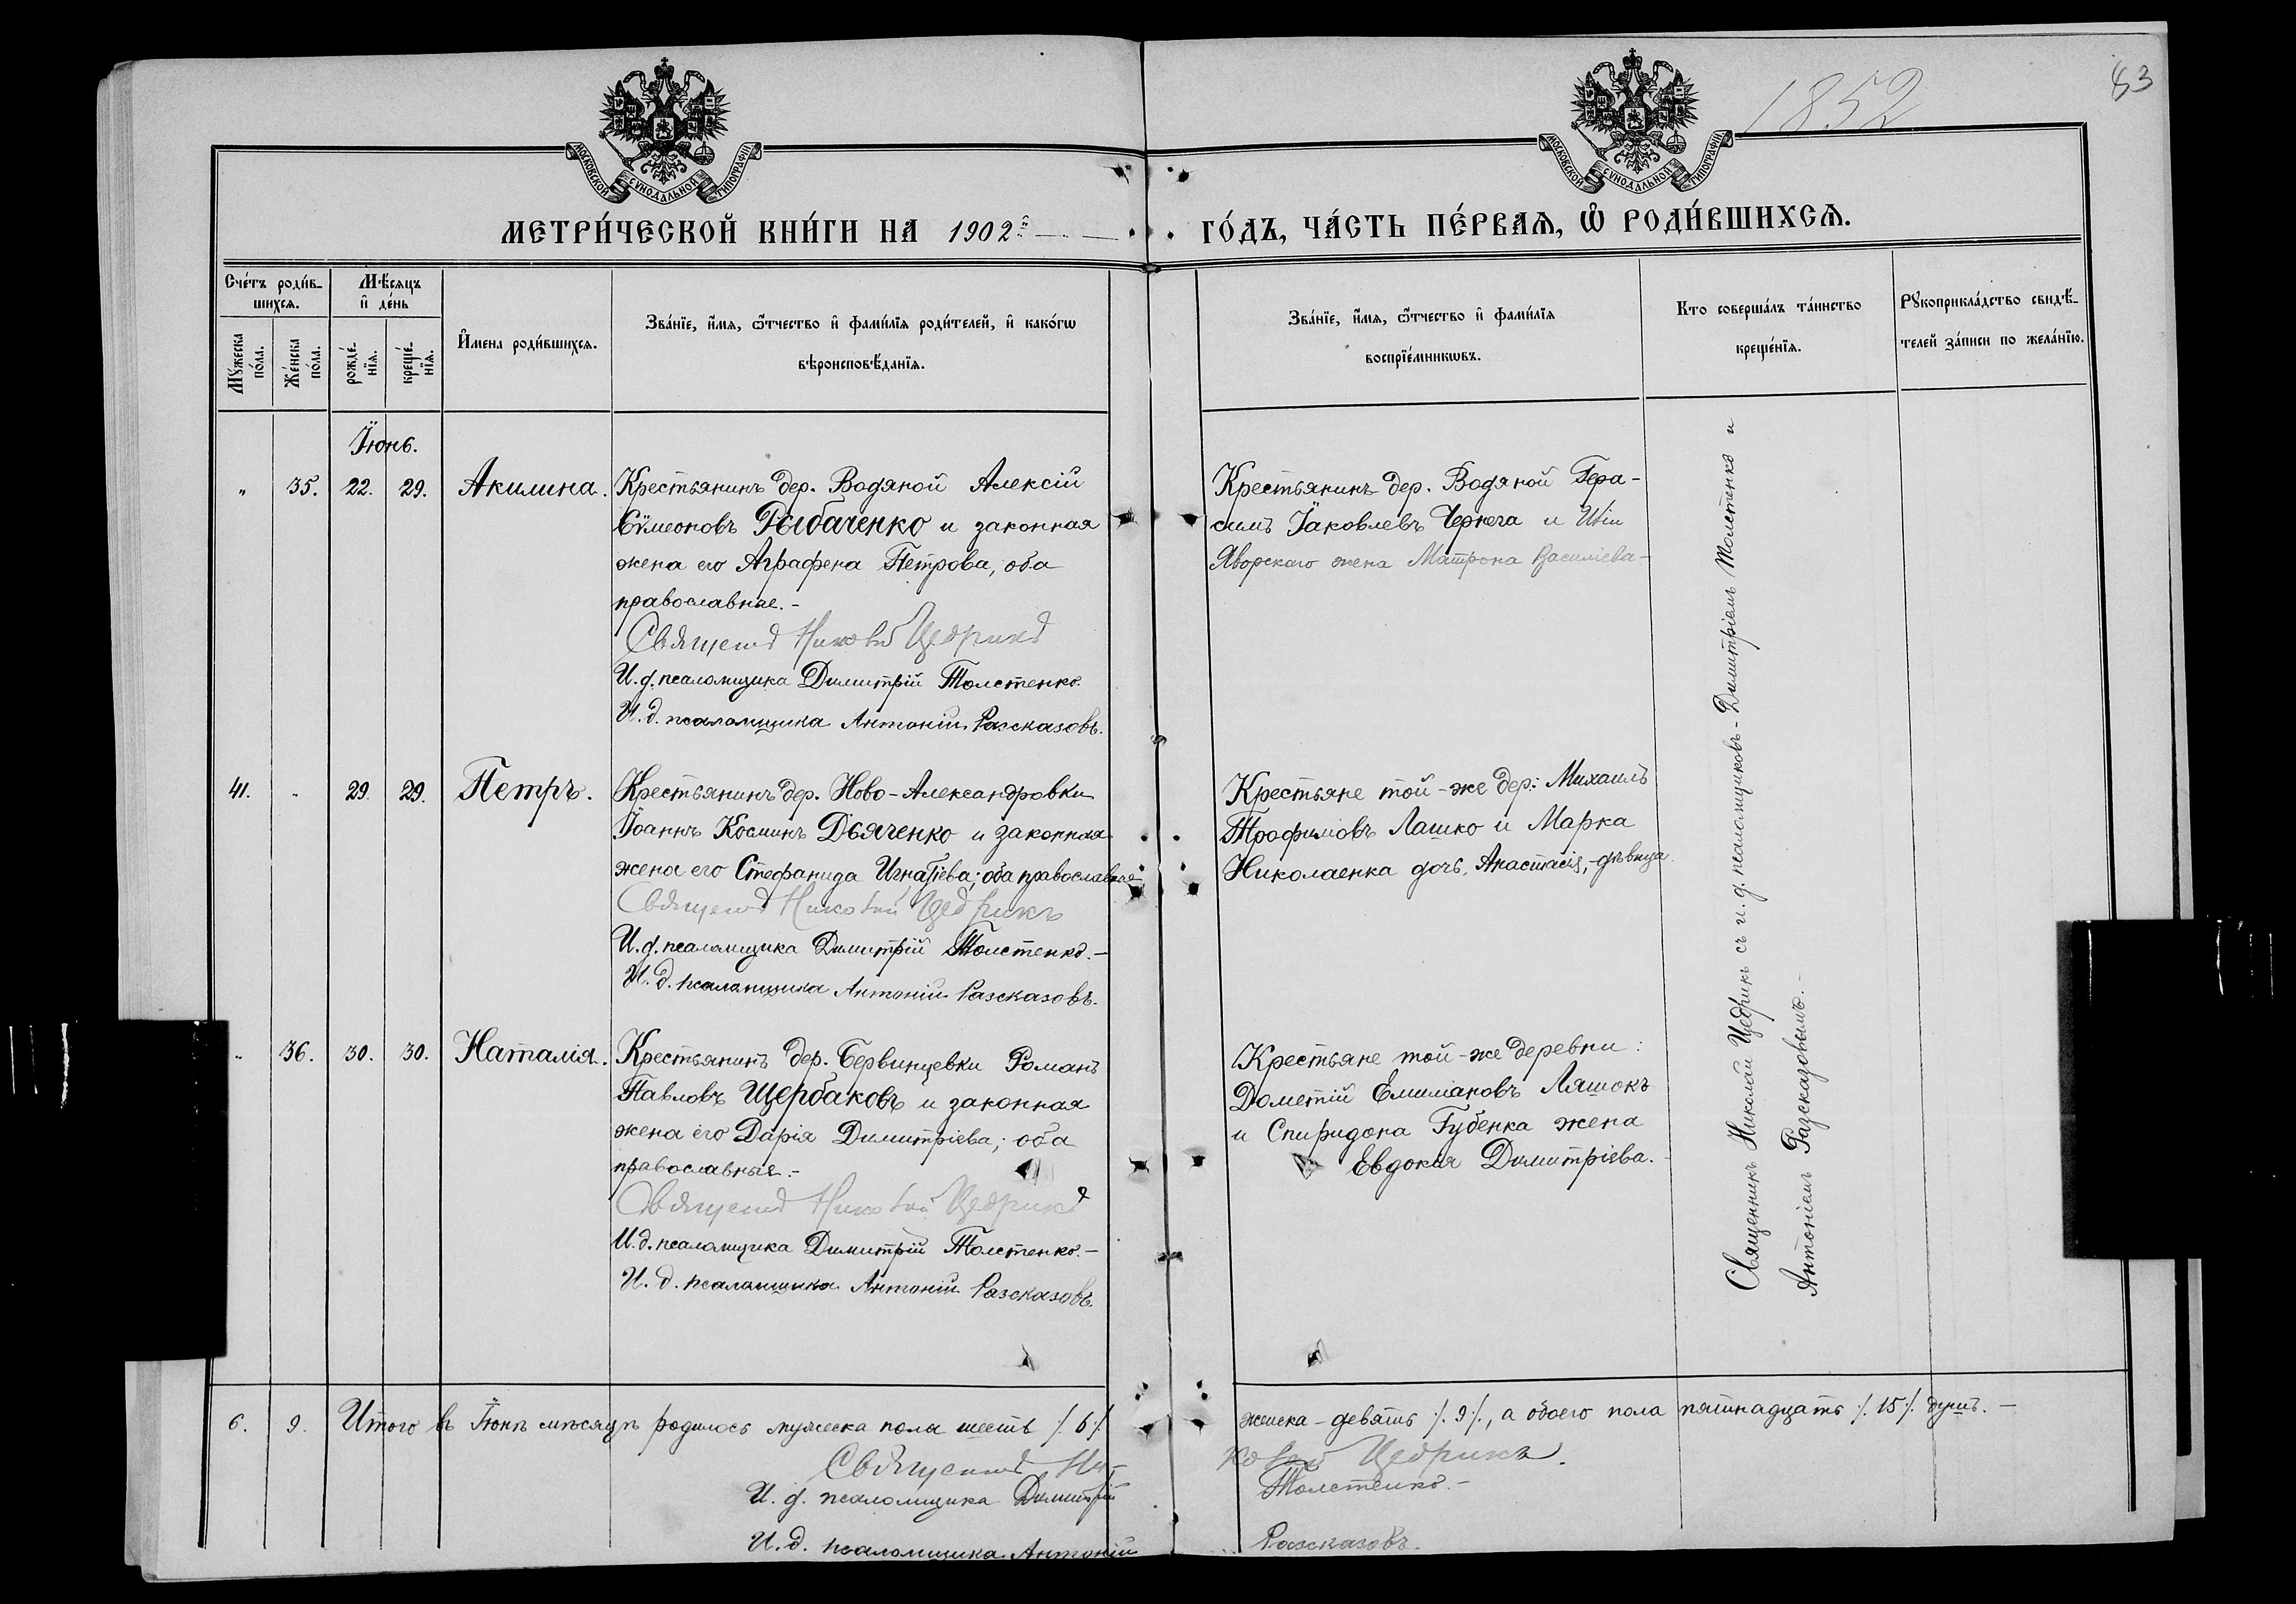 1852
83
МОСКОВСКОЙ СУНОДАЛЬНОЙ ТИПОГРАФІИ
МОСКОВСКОЙ СУНОДАЛЬНОЙ ТИПОГРАФІИ
МЕТРИ́ЧЕСКОЙ КНИ́ГИ НА 1902й
ГО́ДЪ, ЧА́СТЬ ПЕ́РВАѦ, Ѽ РОДИ́ВШИХСѦ.
Сче́тъ роди́в-
шихсѧ.
Мꙋ́жеска
по́ла.
Же́нска
по́ла.
Мѣ́сѧцъ
и҆ де́нь
рожде́-
нїѧ.
креще́-
нїѧ.
И҆мена роди́вшихсѧ.
Зва́нїе, и҆́мѧ, ѻ҆́тчество и҆ фами́лїѧ роди́телей, и҆ како́гѡ
вѣроисповѣ́данїѧ.
Зва́нїе, и҆́мѧ, ѻ҆́тчество и҆ фами́лїѧ
воспрїе́мникѡвъ.
Кто соверша́лъ та́инство
креще́нїѧ.
Рꙋкоприкла́дство свидѣ́-
телей за́писи по жела́нїю.
Іюнь.
" 35. 22. 29. Акилина.
Крестьянинъ дер. Водяной Алексій
Сѵмеоновъ Рыбаченко и законная
жена его Аграфена Петрова, оба
православные.-
Священникъ Николай Цедрикъ
И.д. псаломщика Димитрій Толстенко.
И.д. псаломщика Антоній Разсказовъ.
Крестьянинъ дер. Водяной Гера-
симъ Іаковлевъ Чернега и
Яворскаго жена Матрона Василіева-
41. " 29. 29. Петръ.
Крестьянинъ дер. Ново-Александровки
Іоаннъ Косминъ Дьяченко и законная
жена его Стефанида Игнатіева; оба православные
Священникъ Николай Цедрикъ
И.д. псаломщика Димитрій Толстенко.-
И.д. псаломщика Антоній Разсказовъ.
Крестьяне той-же дер: Михаилъ
Трофимовъ Лашко и Марка
Николаенка дочь, Анастасія,-дѣвица
" 36. 30. 30. Наталія.
Крестьянинъ дер. Бервинцевки Романъ
Павловъ Щербаковъ и законная
жена его Дарія Димитріева; оба
православные.-
Священникъ Николай Цедрикъ
И.д. псаломщика Димитрій Толстенко-
И.д. псаломщика Антоній Разсказовъ.
Крестьяне той-же деревни:
Дометій Емиліановъ Ляшокъ
и Спиридона Губенка жена
Евдокія Димитріева.-
Священникъ Николай Цедрикъ съ и. д. псаломщиковъ- Димитріемъ Толстенко и
Антоніемъ Разсказовымъ.-
6. 9. Итого въ Іюнѣ мѣсяцѣ родилось мужеска пола шесть /.6./.
женска-девять /.9./., а обоего пола пятнадцать /.15./. душъ.-
Священникъ Ни-
колай Цедрикъ.
И. д. псаломщика Димитрій
Толстенко.-
И.д. псаломщика Антоній
Разсказовъ.